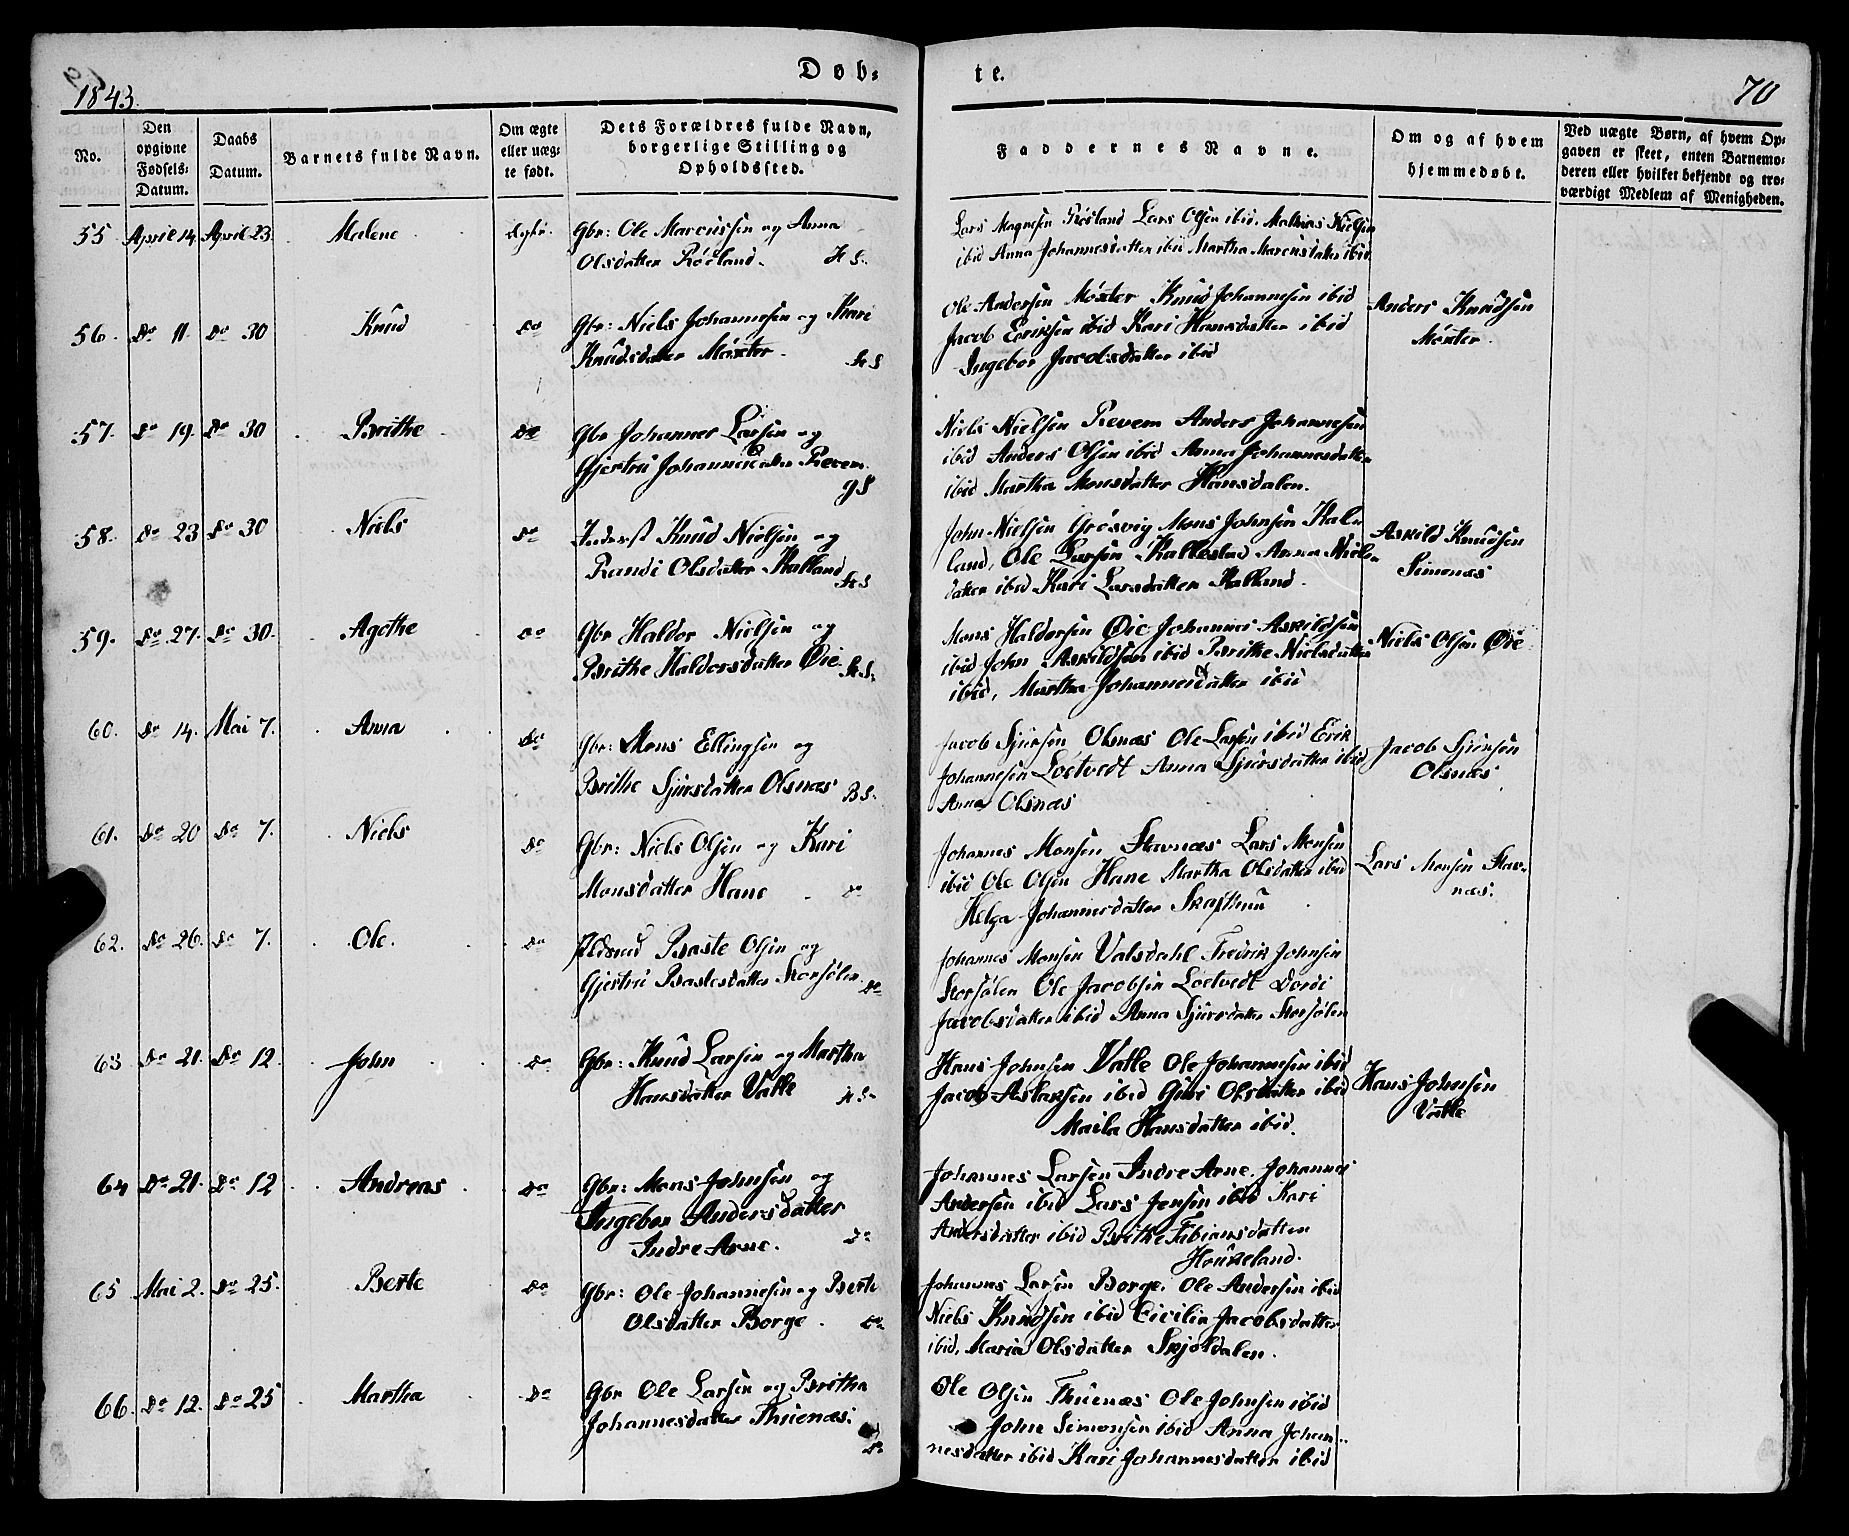 Døb-
te.
1843.
70
No.
Den
opgivne
Fødsels-
Datum.
Daabs
Datum.
Barnets fulde Navn.
Om ægte
eller uæg-
te født.
Dets Forældres fulde Navn,
borgerlige Stilling og
Opholdssted.
Faddernes Navne.
Om og af hvem
hjemmedøbt.
Ved uægte Børn, af hvem Op-
gaven er skeet, enten Barnemo-
deren eller hvilket bekjendt og tro-
værdigt Medlem af Menigheden.
55 April 14. April 23. Malene
Gbr: Ole Marcussen og Anna
Olsdatter Røsland. HS.
Lars Magnesen Røsland Lars Olsen ibid. Mathias Nielsen
ibid Anna Johannesdatter ibid Martha Marcusdatter ibid
56. Do 11. Do 30 Knud Do
Gbr: Niels Johannesen og Kari
Knudsdatter Møxter. HS
Ole Andersen Møxter Knud Johannesen ibid
Jacob Eriksen ibid Kari Hansdatter ibid
Ingebor Jacobsdatter ibid
Anders Knudsen
Møxter.
57. Do 19. Do 30 Brithe Do
Gbr Johannes Larsen og
Gjertru Johannesdatter Revem.
GS
Niels Nielsen Revem Anders Johannesen
ibid Anders Olsen ibid Anna Johannesdatter
ibid Martha Monsdatter Hansdalen.
58. Do 23 Do 30 Niels Do
Inderst Knud Nielsen og
Randi Olsdatter Kalland HS
John Nielsen Grøsvig Mons Johnsen Kal-
land, Ole Larsen Kallestad Anna Niels-
datter ibid Kari Larsdatter Kalland.
Askild Knudsen
Simonæs
59. Do 27. Do 30. Agethe Do
Gbr Haldor Nielsen og
Brithe Haldorsdatter Øie HS.
Mons Haldorsen Øie Johannes Askildsen
ibid John Askildsen ibid Brithe Nielsdatter
ibid, Martha Johannesdatter ibid
Niels Olsen Øie
60. Do 14. Mai 7. Anna Do
Gbr: Mons Ellingsen og
Brithe Sjursdatter Olsnæs BS.
Jacob Sjursen Olsnæs Ole Larsen ibid Erik
Johannesen Loetvedt Anna Sjursdatter ibid
Anna Olsnæs
Jacob Sjursen
Olsnæs
61. Do 20 Do 7. Niels Do
Gbr: Niels Olsen og Kari
Monsdatter Hane Do
Johannes Monsen Stavnæs Lars Monsen
ibid Ole Olsen Hane Martha Olsdatter ibid
Helga Johannesdatter
Lars Monsen Stav-
næs.
62. Do 26. Do 7. Ole. Do
Baste Olsen og
Gjertru Bastesdatter Storsølen. Do
Johannes Monsen Valsdahl Fredrik Johnsen
Storsølen Ole Jacobsen Loetvedt Dordi
Jacobsdatter ibid Anna Sjursdatter Storsølen
63 Do 21. Do 12. John Do
Gbr: Knud Larsen og Martha
Hansdatter Vatle HS.
Hans Johnsen Vatle Ole Johannesen ibid
Jacob Aslaksen ibid Guri Olsdatter ibid
Maila Hansdatter ibid.
Hans Johnsen
Vatle
64 Do 21. Do 12 Andreas Do
Gbr: Mons Johnsen og
Ingebor Andersdatter
Indre Arne. Do
Johannes Larsen Indre Arne. Johannes
Andersen ibid Lars Jensen ibid Kari
Andersdatter ibid Brithe Fabiansdatter
Houkeland.
65 Mai 2. Do 25. Berte Do
Gbr: Ole Johannesen og Berte
Olsdatter Borge. Do
Johannes Larsen Borge. Ole Andersen ibid
Niels Knudsen ibid Cicilia Jacobsdatter
ibid, Maria Olsdatter Skjoldalen.
66. Do 12. Do 25 Martha Do
Gbr Ole Larsen og Britha
Johannesdatter Thuenæs.
Do
Ole Olsen Thuenæs Ole Johnsen ibid
John Simonsen ibid Anna Johan-
nesdatter ibid Kari Johannesdatter ibid